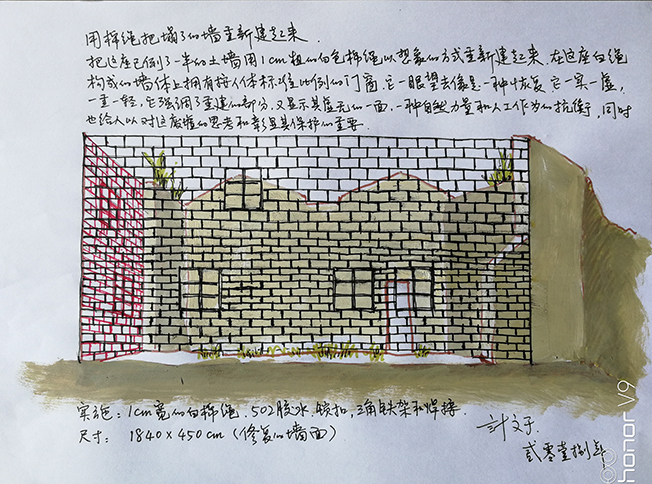 用棉绳把塌了的墙重新建起来.
把这座已倒了一半的土墙用1cm粗的白色棉绳以想象的方式重新建起来.在这座白绳
构成的墙体上拥有按人体标准比例的门窗.它一眼望去像是一种恢复.它一实一虚,
一重一轻.它强调了重建的部分.又显示其虚无的一面.一种自然力量和人工作为的抗衡,同时
也给人以对这废墟的思考和彰显其保护的重要.
实施:1cm宽的白棉绳.502胶水.铰扣,三角铁架和焊接.
尺寸: 1840×450cm(修复的墙面)
贰零壹捌年
honor V9